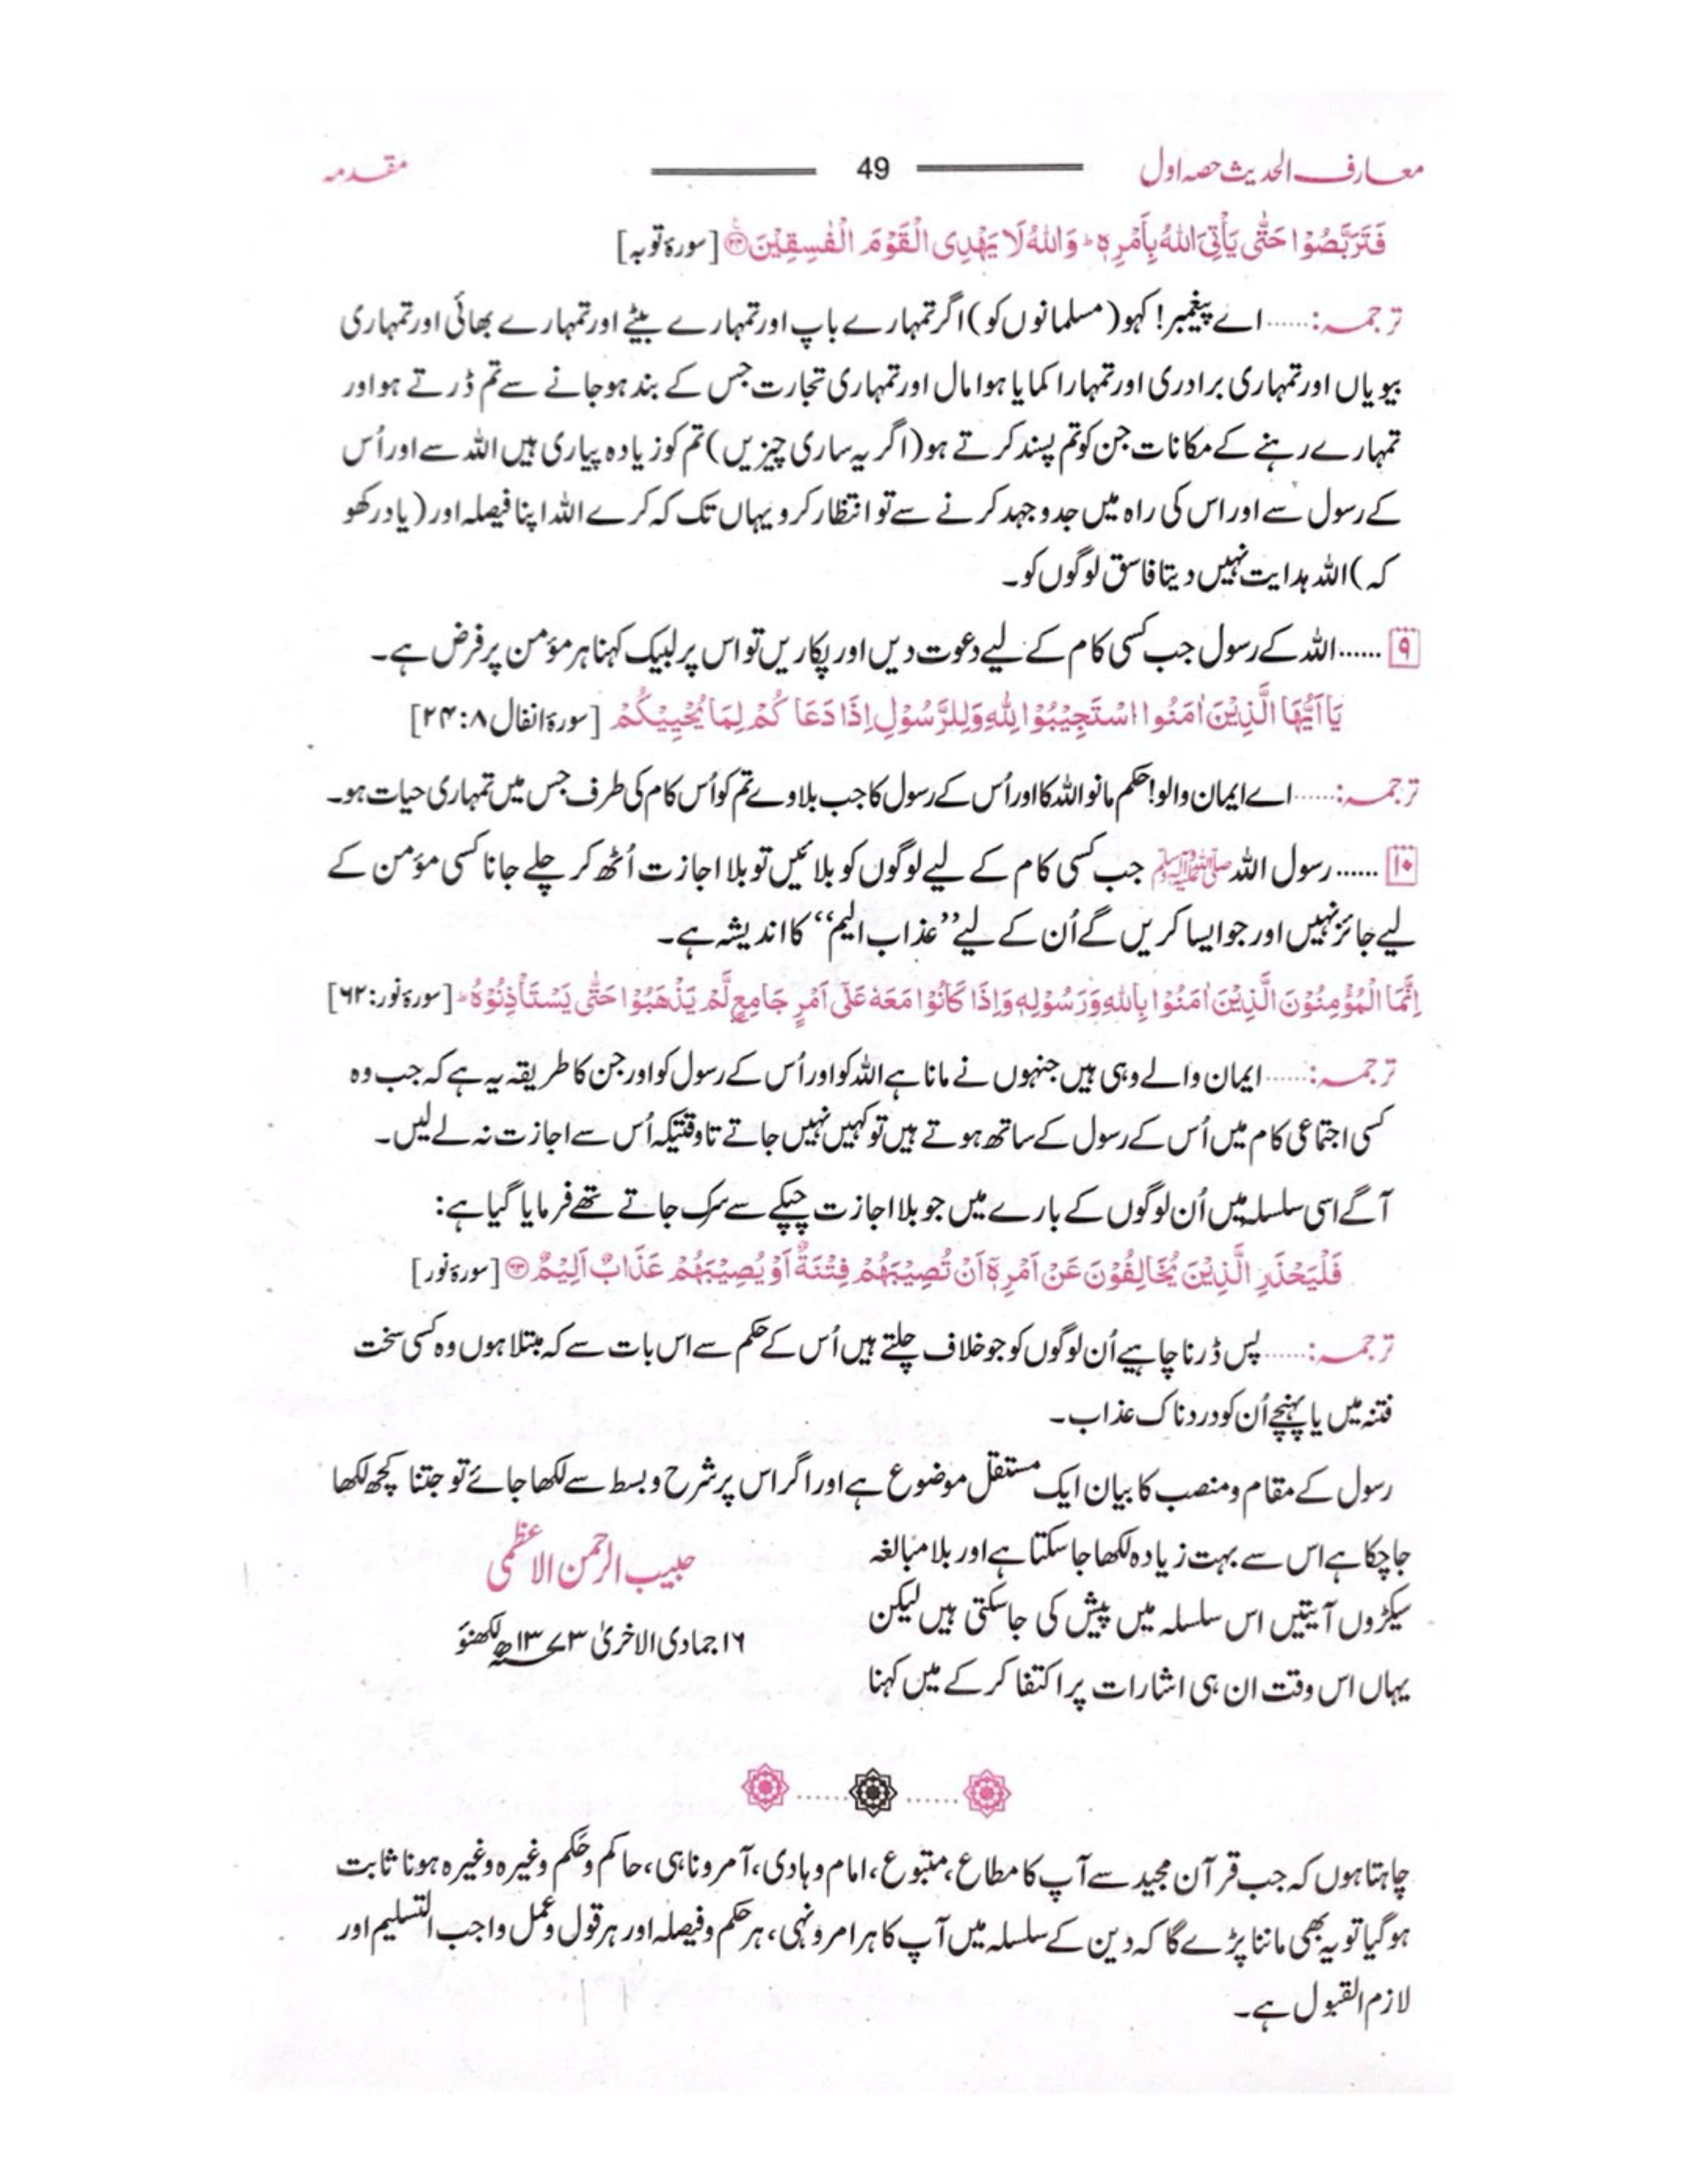 معارف الحدیث حصہ اول 49 مقدمہ
فَتَرَبَّصُوْا حَتّٰى يَأْتِىَ اللّٰهُ بِأَمْرِهٖ ؕ وَاللّٰهُ لَا يَهْدِى الْقَوْمَ الْفٰسِقِيْنَ [سورۂ توبہ]
ترجمہ:...... اے پیغمبر! کہو (مسلمانوں کو) اگر تمہارے باپ اور تمہارے بیٹے اور تمہارے بھائی اور تمہاری
بیویاں اور تمہاری برادری اور تمہارا کمایا ہوا مال اور تمہاری تجارت جس کے بند ہو جانے سے تم ڈرتے ہو اور
تمہارے رہنے کے مکانات جن کو تم پسند کرتے ہو (اگر یہ ساری چیزیں) تم کو زیادہ پیاری ہیں اللہ سے اور اُس
کے رسول سے اور اس کی راہ میں جدوجہد کرنے سے تو انتظار کرو یہاں تک کہ کرے اللہ اپنا فیصلہ اور (یاد رکھو
کہ) اللہ ہدایت نہیں دیتا فاسق لوگوں کو۔
۹ ...... اللہ کے رسول جب کسی کام کے لیے دعوت دیں اور پکاریں تو اس پر لبیک کہنا ہر مؤمن پر فرض ہے۔
يَا اَيُّهَا الَّذِيْنَ اٰمَنُوا اسْتَجِيْبُوْا لِلّٰهِ وَلِلرَّسُوْلِ اِذَا دَعَا كُمْ لِمَا يُحْيِيْكُمْ [سورۂ انفال ۸:۲۴]
ترجمہ:...... اے ایمان والو! حکم مانو اللہ کا اور اُس کے رسول کا جب بلاوے تم کو اُس کام کی طرف جس میں تمہاری حیات ہو۔
۱۰ ...... رسول اللہ ﷺ جب کسی کام کے لیے لوگوں کو بلائیں تو بلا اجازت اُٹھ کر چلے جانا کسی مؤمن کے
لیے جائز نہیں اور جو ایسا کریں گے اُن کے لیے ”عذاب الیم“ کا اندیشہ ہے۔
اِنَّمَا الْمُؤْمِنُوْنَ الَّذِيْنَ اٰمَنُوْا بِاللّٰهِ وَرَسُوْلِهٖ وَاِذَا كَانُوْا مَعَهٗ عَلٰٓى اَمْرٍ جَامِعٍ لَّمْ يَذْهَبُوْا حَتّٰى يَسْتَأْذِنُوْهُ ؕ [سورۂ نور:۶۲]
ترجمہ:...... ایمان والے وہی ہیں جنہوں نے مانا ہے اللہ کو اور اُس کے رسول کو اور جن کا طریقہ یہ ہے کہ جب وہ
کسی اجتماعی کام میں اُس کے رسول کے ساتھ ہوتے ہیں تو کہیں نہیں جاتے تاوقتیکہ اُس سے اجازت نہ لے لیں۔
آگے اسی سلسلہ میں اُن لوگوں کے بارے میں جو بلا اجازت چپکے سے سرک جاتے تھے فرمایا گیا ہے:
فَلْيَحْذَرِ الَّذِيْنَ يُخَالِفُوْنَ عَنْ اَمْرِهٖٓ اَنْ تُصِيْبَهُمْ فِتْنَةٌ اَوْ يُصِيْبَهُمْ عَذَابٌ اَلِيْمٌ ۶۳ [سورۂ نور]
ترجمہ:...... پس ڈرنا چاہیے اُن لوگوں کو جو خلاف چلتے ہیں اُس کے حکم سے اس بات سے کہ مبتلا ہوں وہ کسی سخت
فتنہ میں یا پہنچے اُن کو دردناک عذاب۔
رسول کے مقام ومنصب کا بیان ایک مستقل موضوع ہے اور اگر اس پر شرح وبسط سے لکھا جائے تو جتنا کچھ لکھا
جاچکا ہے اس سے بہت زیادہ لکھا جاسکتا ہے اور بلامبالغہ
سیکڑوں آیتیں اس سلسلہ میں پیش کی جاسکتی ہیں لیکن
یہاں اس وقت ان ہی اشارات پر اکتفا کر کے میں کہنا
حبیب الرحمن الاعظمی
۱۶ جمادی الاخریٰ ۱۳۷۳ھ لکھنؤ
چاہتا ہوں کہ جب قرآن مجید سے آپ کا مطاع، متبوع، امام وہادی، آمر وناہی، حاکم وحَکم وغیرہ وغیرہ ہونا ثابت
ہو گیا تو یہ بھی ماننا پڑے گا کہ دین کے سلسلہ میں آپ کا ہر امر ونہی، ہر حکم وفیصلہ اور ہر قول وعمل واجب التسلیم اور
لازم القبول ہے۔